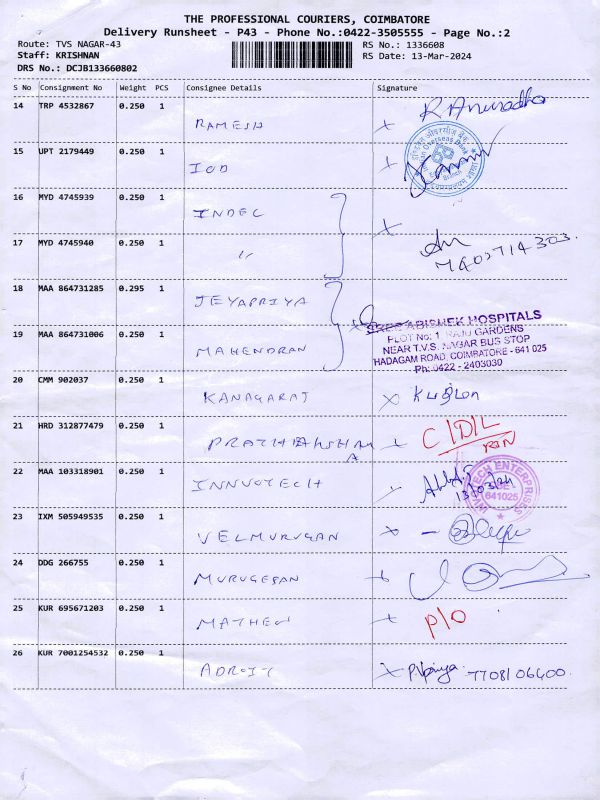 THE PROFESSIONAL COURIERS, COIMBATORE
Delivery Runsheet - P43 - Phone No.:0422-3505555 - Page No.:2
Route: TVS NAGAR-43 RS No.: 1336608
Staff: KRISHNAN RS Date: 13-Mar-2024
DRS No.: DCJB133660802
S No Consignment No Weight PCS Consignee Details Signature
14 TRP 4532867 0.250 1 RAMESH x R. Anuradha
15 UPT 2179449 0.250 1 IOB x
16 MYD 4745939 0.250 1 INDEL x
17 MYD 4745940 0.250 1 "
18 MAA 864731285 0.295 1 JEYAPRIYA
SREE ABISHEK HOSPITALS
PLOT No: 1, RAJU GARDENS
19 MAA 864731006 0.250 1 MAHENDRAN NEAR T.V.S. NAGAR BUS STOP
HADAGAM ROAD, COIMBATORE - 641 025
Ph: 0422 - 2403030
20 CMM 902037 0.250 1 KANAGARAJ x
21 HRD 312877479 0.250 1 x C/D/L
22 MAA 103318901 0.250 1 INNVOTECH 13/03/24
TECH ENTERPRISES
641025
23 IXM 505949535 0.250 1 VELMURUGAN x
24 DDG 266755 0.250 1 MURUGESAN x
25 KUR 695671203 0.250 1 MATHEW x P/O
26 KUR 7001254532 0.250 1 ADROIT x 7708106400.